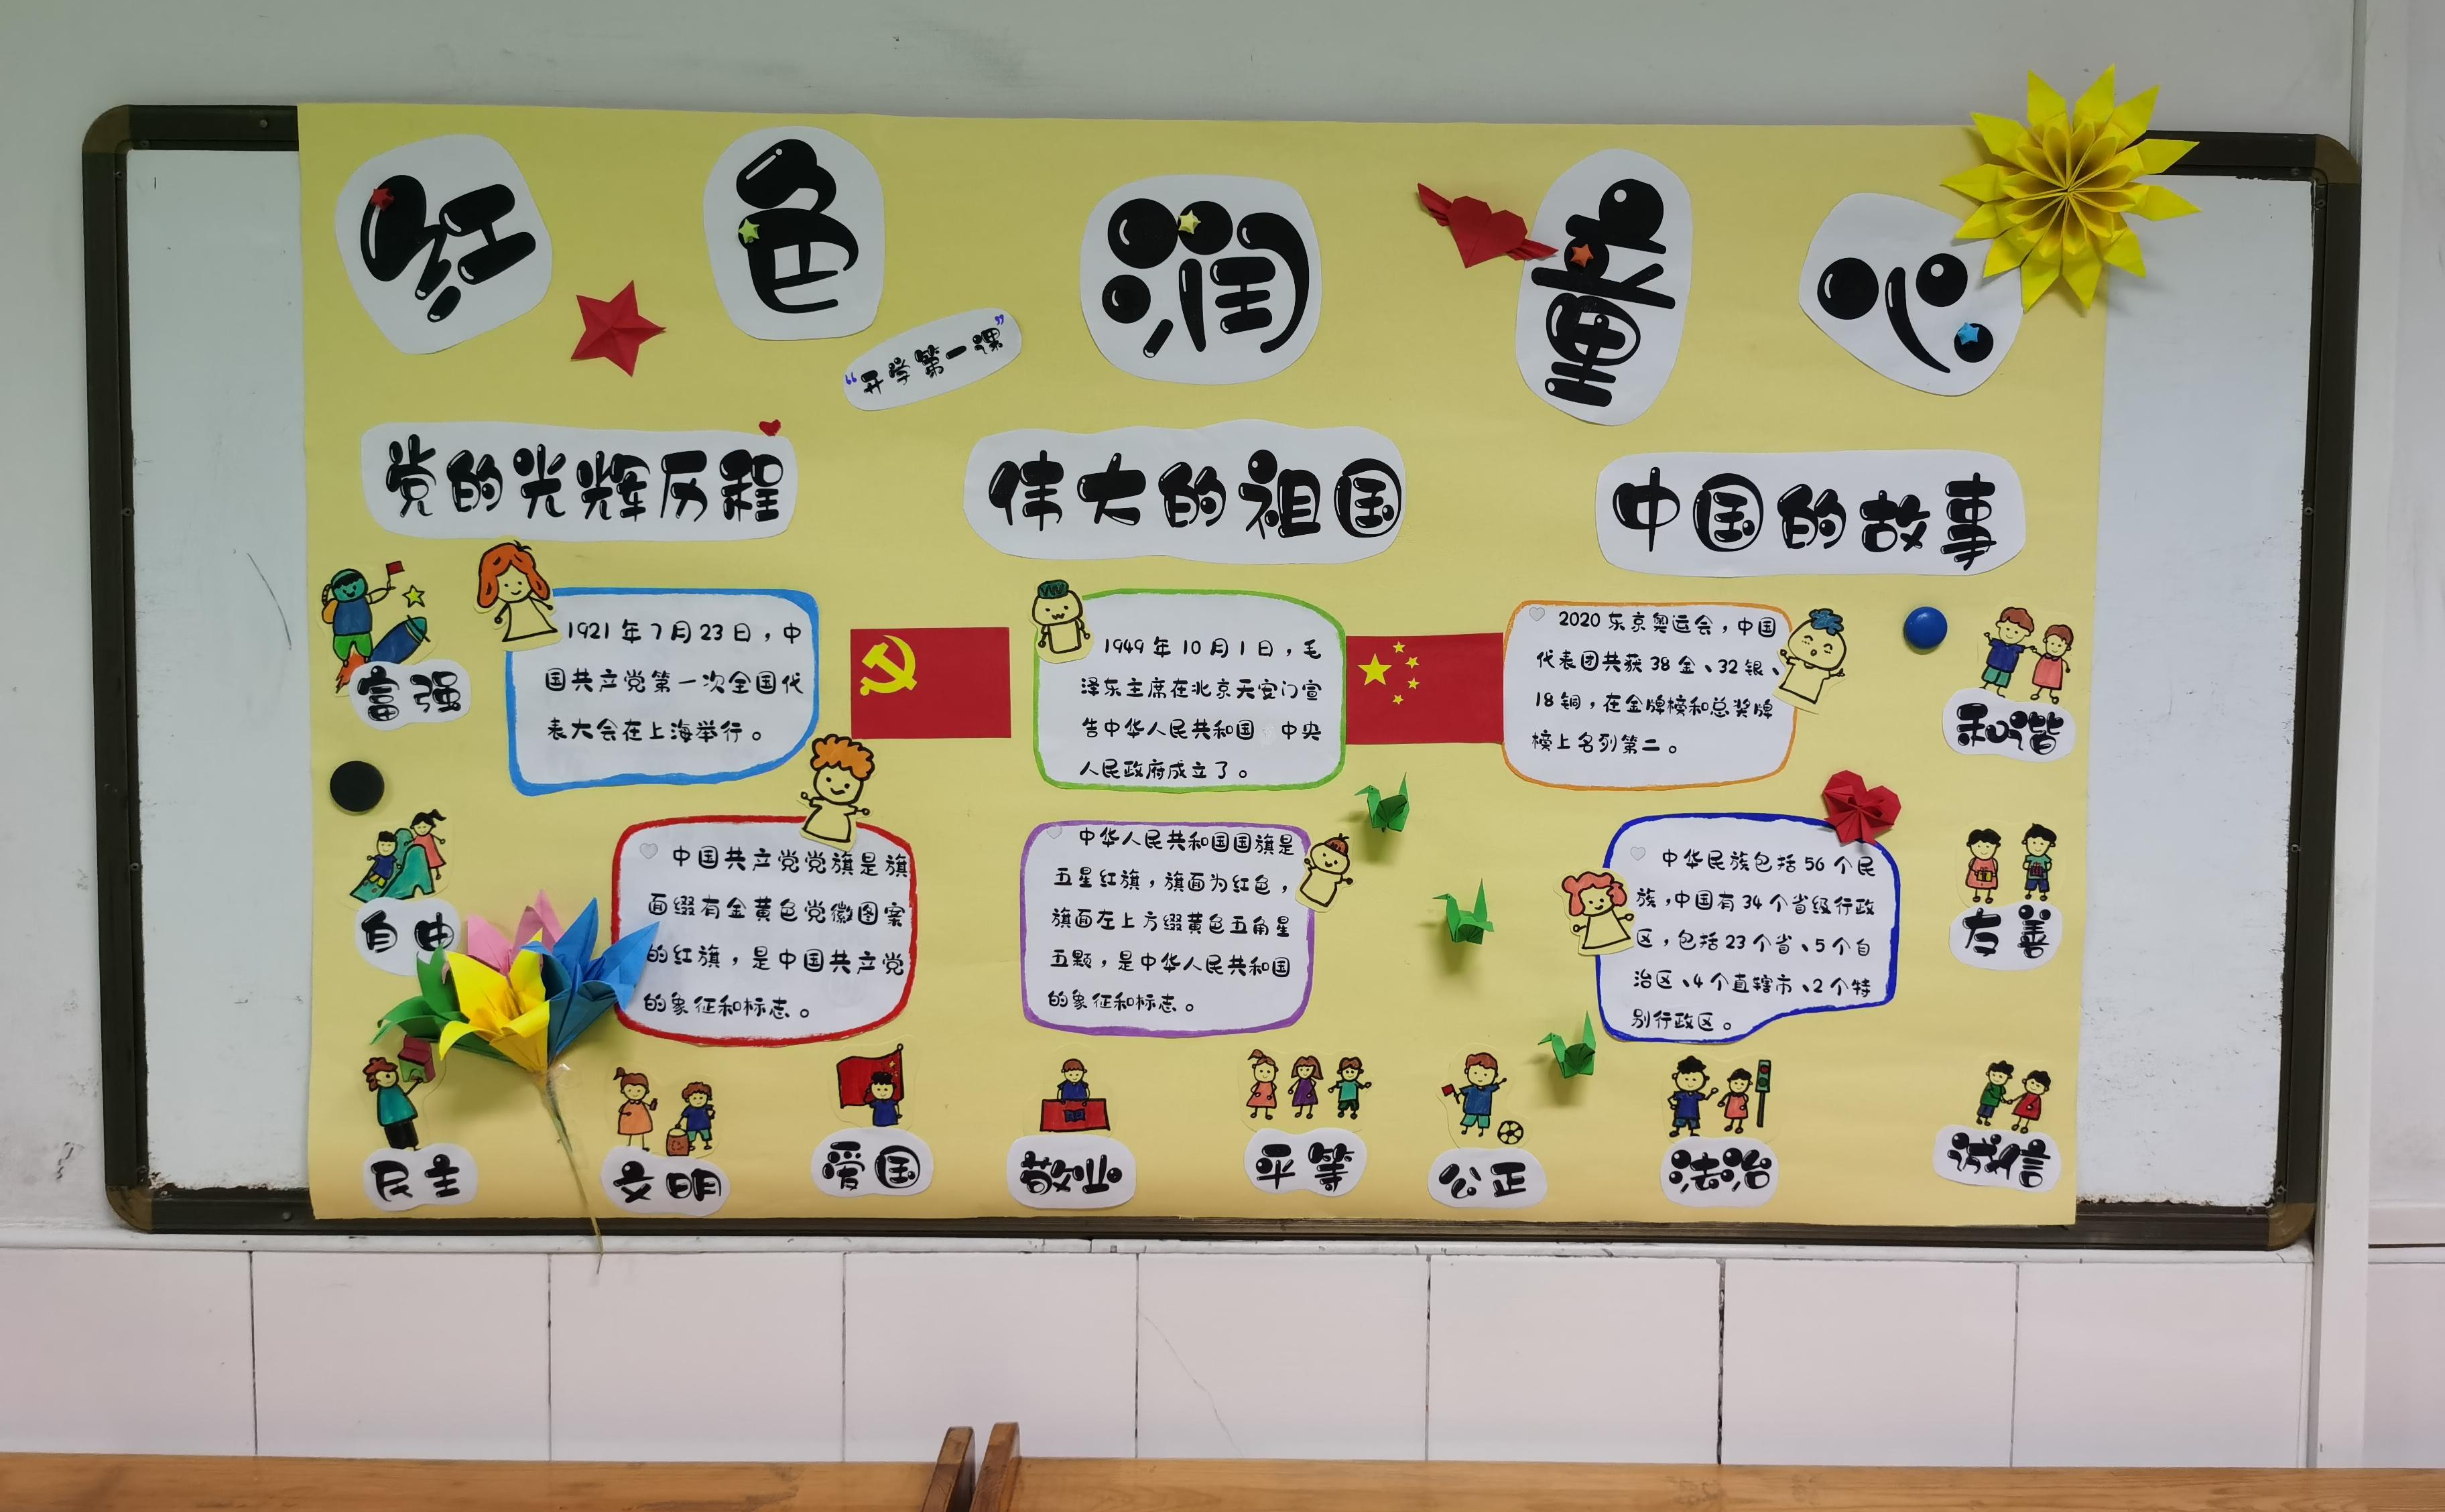 红色润童心
“开学第一课”
党的光辉历程
伟大的祖国
中国的故事
富强
1921年7月23日，中
国共产党第一次全国代
表大会在上海举行。
1949年10月1日，毛
泽东主席在北京天安门宣
告中华人民共和国 中央
人民政府成立了。
2020东京奥运会，中国
代表团共获38金、32银、
18铜，在金牌榜和总奖牌
榜上名列第二。
和谐
自由
中国共产党党旗是旗
面缀有金黄色党徽图案
的红旗，是中国共产党
的象征和标志。
中华人民共和国国旗是
五星红旗，旗面为红色，
旗面左上方缀黄色五角星
五颗，是中华人民共和国
的象征和标志。
中华民族包括56个民
族，中国有34个省级行政
区，包括23个省、5个自
治区、4个直辖市、2个特
别行政区。
友善
民主
文明
爱国
敬业
平等
公正
法治
诚信